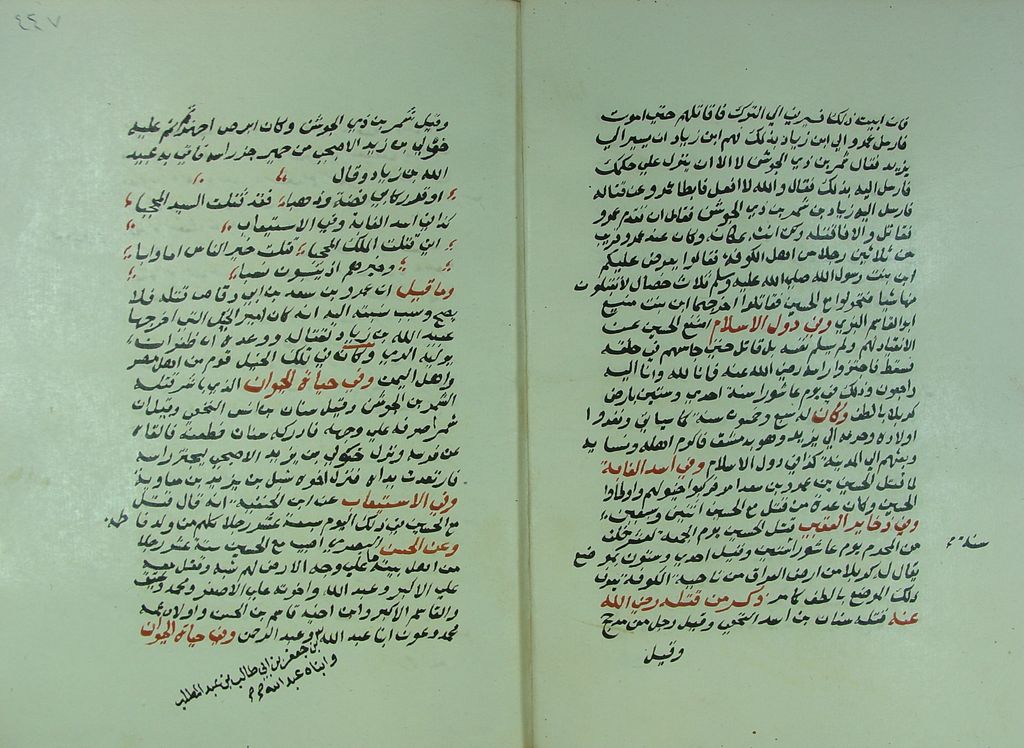 فان ابيت ذلك فسيرني الي الترك فاقاتلهم حتي اموت
فارسل عمرو الي ابن زياد بذلك فهم ابن زياد ان يسير الي
يزيد فقال شمر بن ذي الجوشن لا الا ان ينزل علي حكمك
فارسل اليه بذلك فقال والله لا افعل فابطا عمرو عن قتاله
فارسل اليه زياد بن شمر بن ذي الجوشن فقال ان تقدم عمرو
فقاتل والا فاقتله وكن انت مكانه وكان عند عمرو قريب
من ثلاثين رجلا من اهل الكوفة فقالوا يعرض عليكم
ابن بنت رسول الله صلي الله عليه وسلم ثلاث خصال لا تقبلون
منها شيا فتحولوا مع الحسين فقاتلوا اخرجهما ابن بنت منيع
ابو القاسم البغوي وفي دول الاسلام امتنع الحسين عن
الانقياد لهم ولم يسلم نفسه بل قاتل حتي جاسهم في حلقه
فسقط فاحتزوا راسه رضي الله عنه فانا لله وانا اليه
راجعون وذلك في يوم عاشوراء سنة احدي وستين بارض
كربلا بالطف وكان له تسع وخمسون سنة كما سياتي وبعثوا
اولاده وحرمه الي يزيد وهو بدمشق فاكرم اهله ونساءه
وبعثهم الي المدينة كذا في دول الاسلام وفي اسد الغابة
لما قتل الحسين بن عمرو بن سعد امر فركبوا خيولهم واوطاوا
الحسين وكان عدة من قتل مع الحسين اثنين وسبعين
وفي ذخاير العقبي قتل الحسين يوم الجمعة لعشر خلت
من المحرم يوم عاشوراء ستين وقيل احدي وستون بموضع
سنة
يقال له كربلا من ارض العراق من ناحية الكوفة
ذلك الموضع بالطف كما مر ذكر من قتله رضي الله
عنه قتله سنان بن انس النخعي وقيل رجل من مذحج
وقيل
٤٤٧
وقيل شمر بن ذي الجوشن وكان ابرص اجهز عليه
خولي بن يزيد الاصبحي من حمير جز راسه فاتي به عبيد
الله بن زياد وقال
اوقر ركابي فضة وذهبا فقد قتلت السيد المحجبا
كذا في اسد الغابة وفي الاستيعاب
اني قتلت الملك المحجبا قتلت خير الناس اما وابا
وخيرهم اذ ينسبون نسبا
وما قيل ان عمرو بن سعد بن ابي وقاص قتله فلا
يصح وسبب نسبته اليه انه كان امير الخيل التي اخرجها
عبيد الله بن زياد لقتاله ووعده ان ظفر ان
يوليه الري وكان في تلك الخيل قوم من اهل مصر
واهل اليمن وفي حياة الحيوان الذي باشر قتله
الشمر بن الجوشن وقيل سنان بن انس النخعي وقيل ان
شمر اضربه علي وجهه فادركه سنان فطعنه فالقاه
عن فرسه ونزل خولي بن يزيد الاصبحي ليحتز راسه
فارتعدت يداه فنزل اخوه شبل بن يزيد
وفي الاستيعاب عن ابن الحنفية انه قال قتل
مع الحسين في ذلك اليوم سبعة عشر رجلا كلهم من ولد فا
طمة
وعن الحسن البصري اصيب مع الحسين ستة عشر رجلا
من اهل بيته ما علي وجه الارض لهم شبه وقتل معه
علي الاكبر وعبد الله واخوته علي الاصغر ومحمد وعتيق
والقاسم الاكبر وابن اخيه قاسم بن الحسن واولاد عمه
محمد وعون ابنا عبد الله وعبد الرحمن وفي حياة الحيوان
بن جعفر بن ابي طالب بن عبد المطلب
وابناه عبد الله